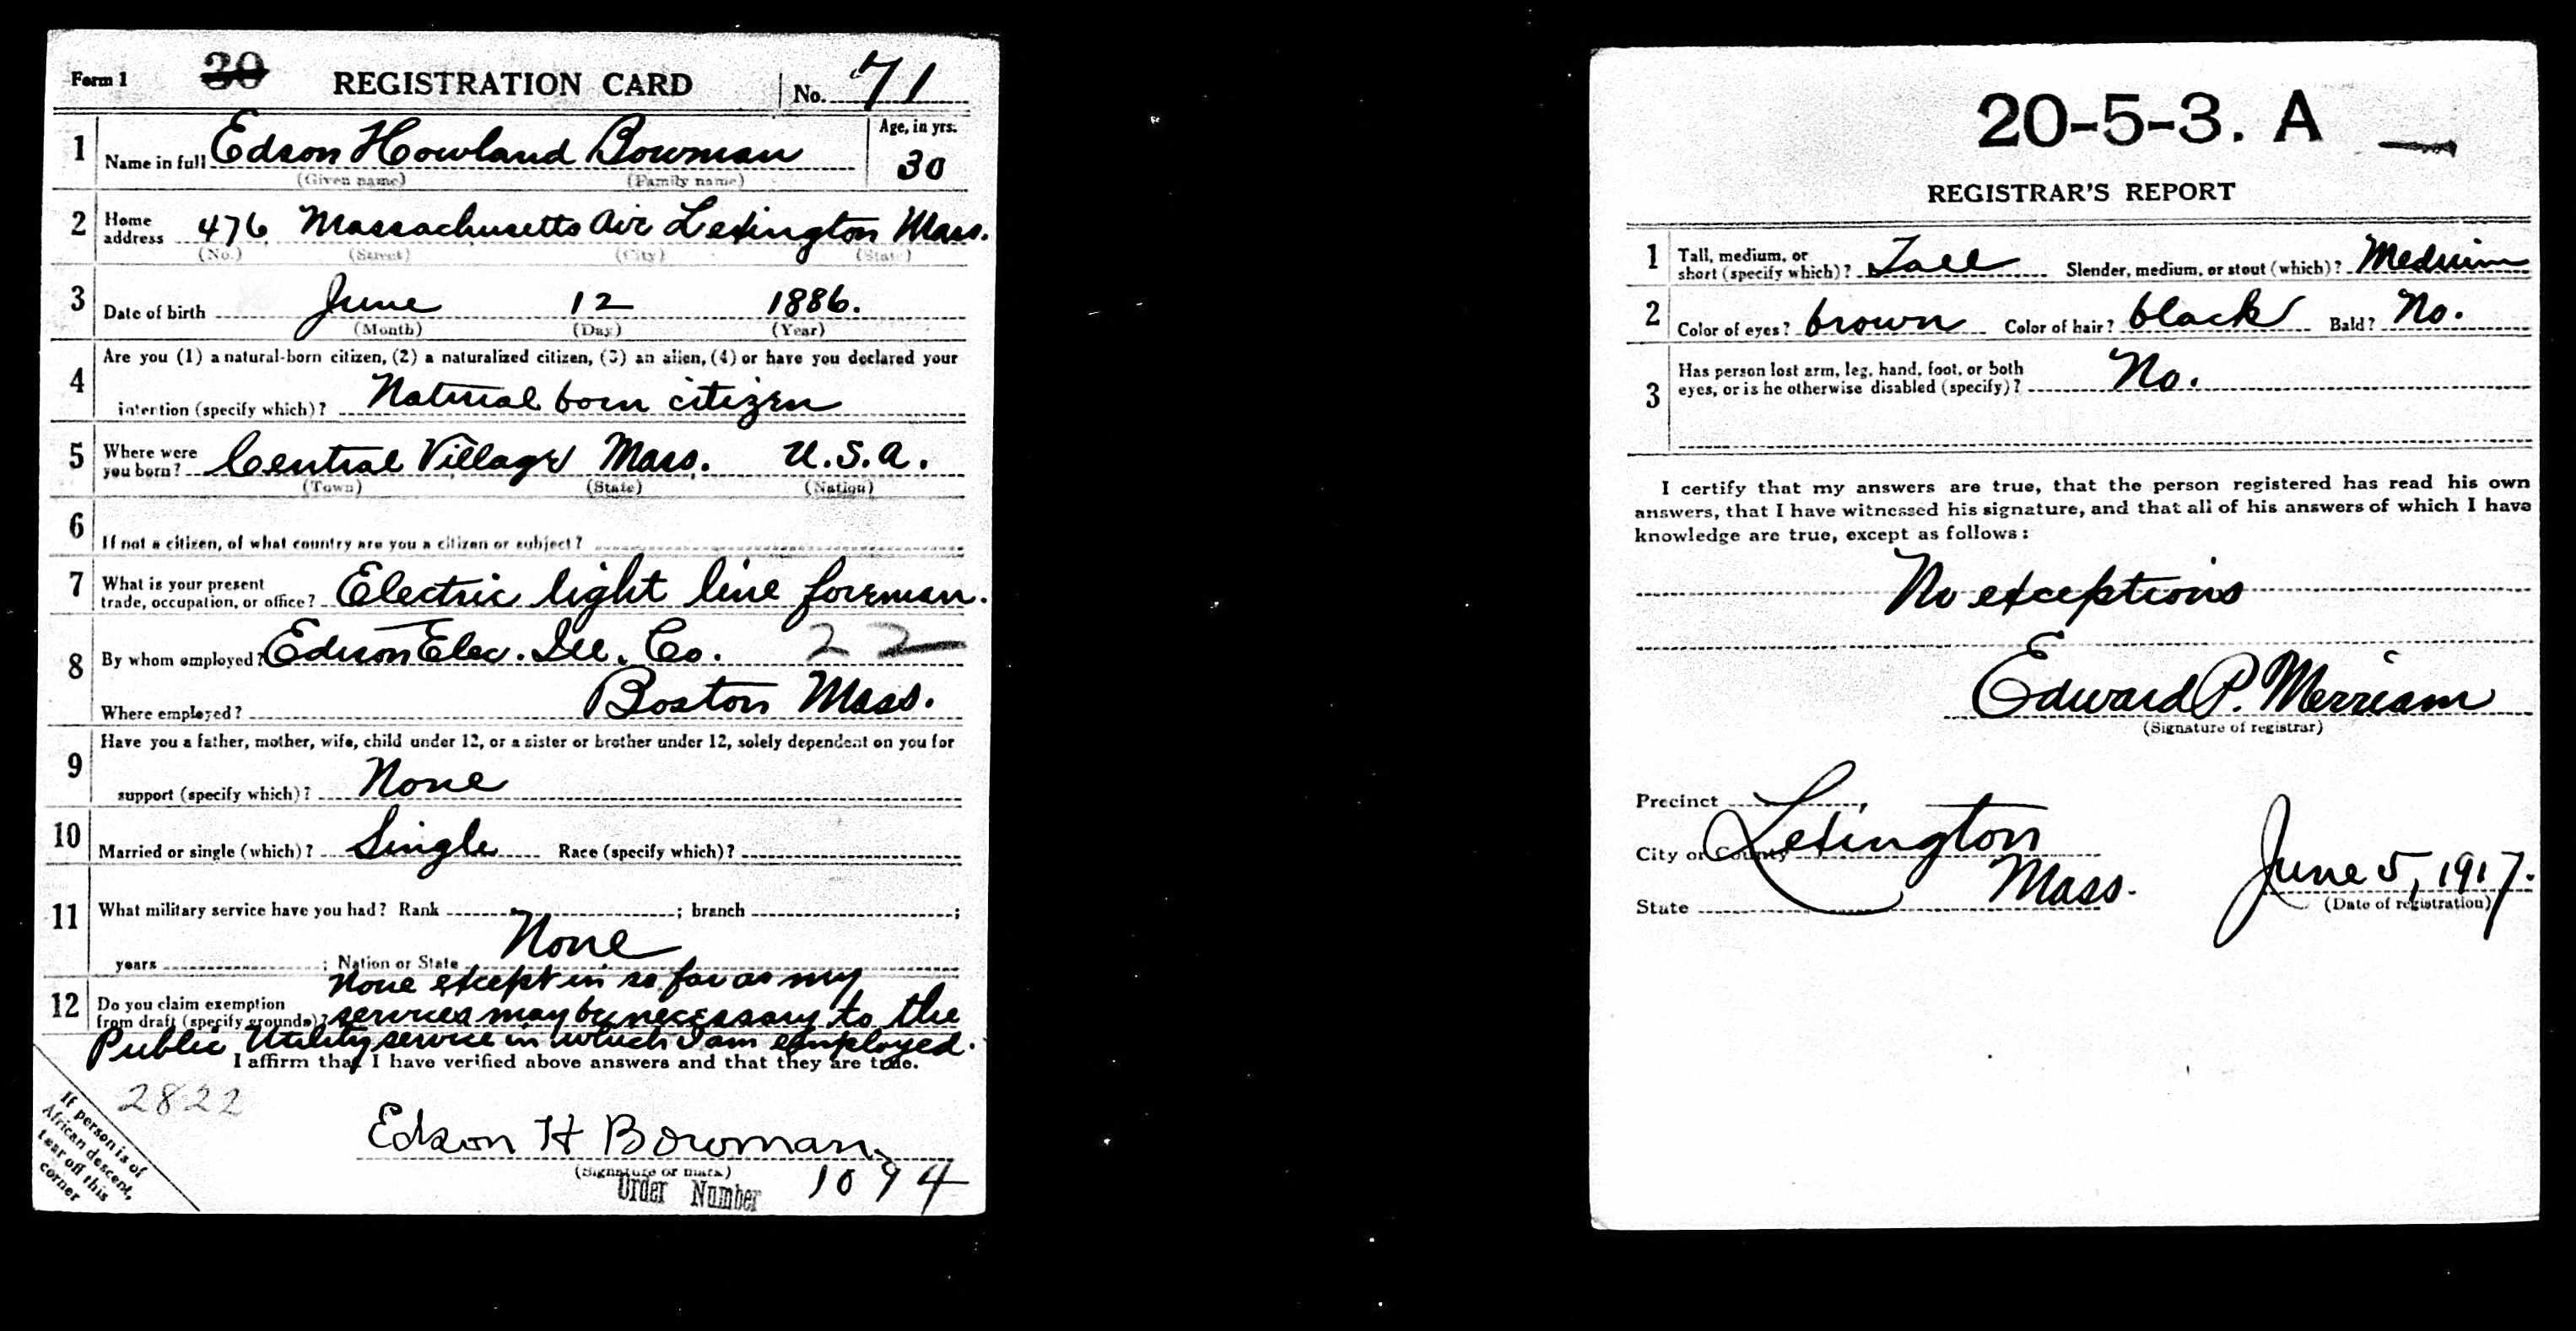 Form 1 30 REGISTRATION CARD No. 71
1 Name in full Edson Howland Bowman Age, in yrs. 30
(Given name) (Family name)
2 Home address 476 Massachusetts Ave Lexington Mass.
(No.) (Street) (City) (State)
3 Date of birth June 12 1886.
(Month) (Day) (Year)
4 Are you (1) a natural-born citizen, (2) a naturalized citizen, (3) an alien, (4) or have you declared your
intention (specify which)? Natural born citizen
5 Where were you born? Central Village Mass. U.S.A.
(Town) (State) (Nation)
6 If not a citizen, of what country are you a citizen or subject?
7 What is your present trade, occupation, or office? Electric light line foreman.
8 By whom employed? Edison Elec. Ill. Co. 22
Where employed? Boston Mass.
9 Have you a father, mother, wife, child under 12, or a sister or brother under 12, solely dependent on you for
support (specify which)? None
10 Married or single (which)? Single Race (specify which)?
11 What military service have you had? Rank ; branch ;
years ; Nation or State None
12 Do you claim exemption from draft (specify grounds)? None except in so far as my
services may be necessary to the
Public Utility service in which I am employed.
I affirm that I have verified above answers and that they are true.
2822
If person is of
African descent,
tear off this
corner
Edson H Bowman
(Signature or mark)
Order Number 1094
20-5-3. A
REGISTRAR'S REPORT
1 Tall, medium, or short (specify which)? Tall Slender, medium, or stout (which)? Medium
2 Color of eyes? brown Color of hair? black Bald? No.
3 Has person lost arm, leg, hand, foot, or both
eyes, or is he otherwise disabled (specify)? No.
I certify that my answers are true, that the person registered has read his own
answers, that I have witnessed his signature, and that all of his answers of which I have
knowledge are true, except as follows:
No exceptions
Edward P. Merriam
(Signature of registrar)
Precinct
City or County Lexington
State Mass. June 5, 1917.
(Date of registration)